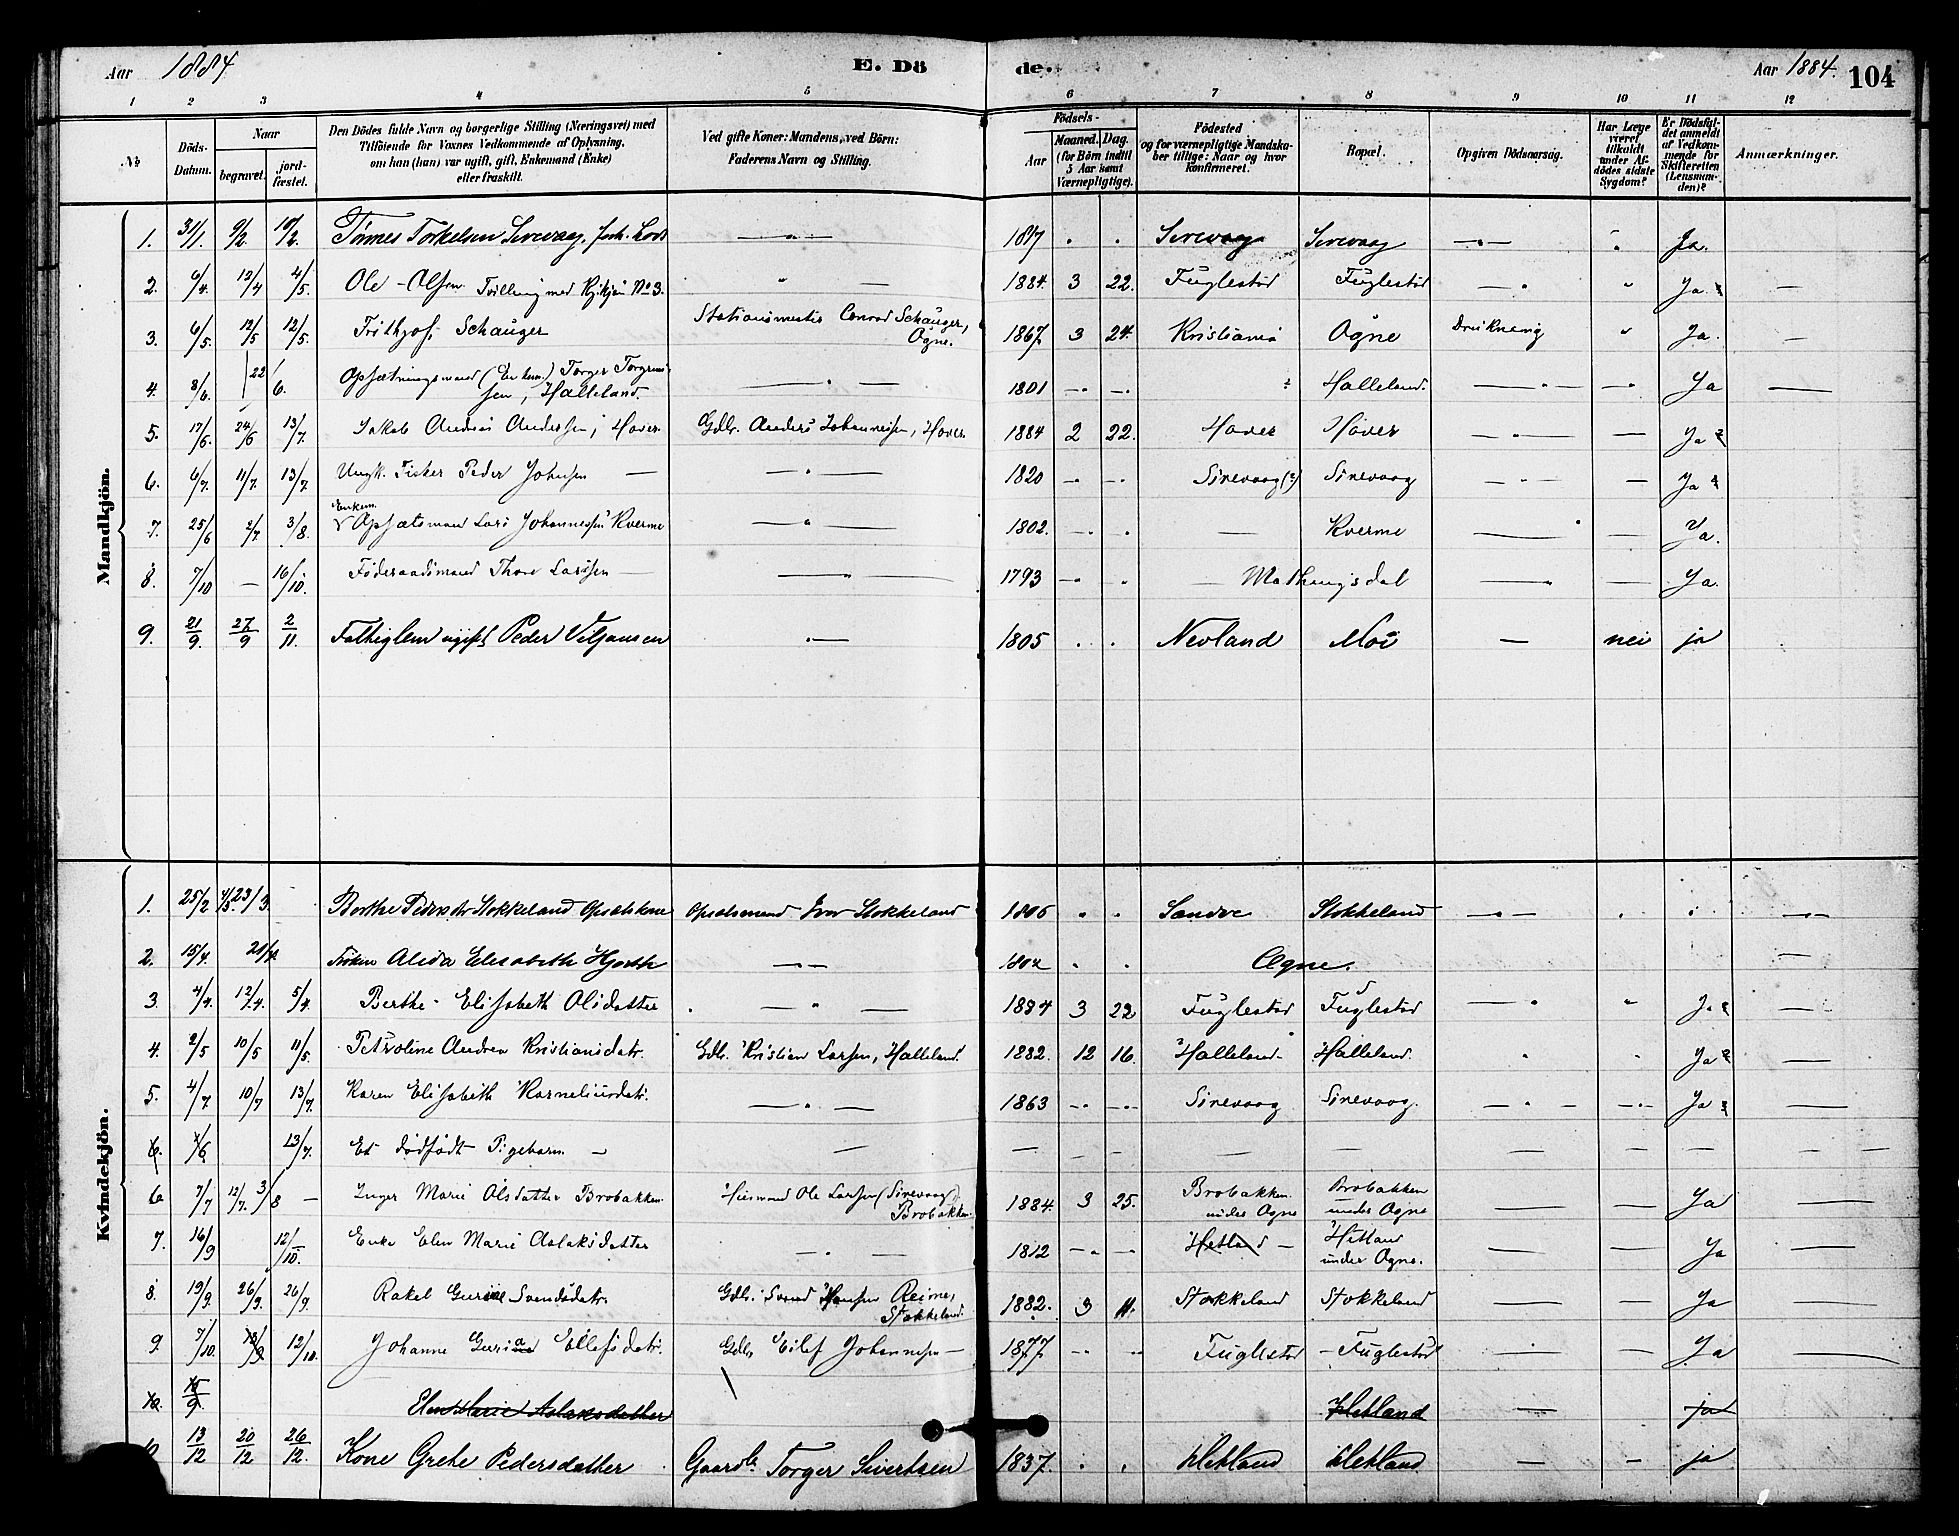 Aar 1884. E. Dö de. Aar 1884. 104
1 2 3 4 5 6 7 8 9 10 11 12
No
Döds-Datum.
Naar
begravet.
jordfæstet.
Den Dödes fulde Navn og borgerlige Stilling (Næringsvei) med
Tilföiende for Voxnes Vedkommende af Oplysning,
om han (hun) var ugift, gift, Enkemand (Enke)
eller fraskilt.
Ved gifte Koner: Mandens, ved Börn:
Faderens Navn og Stilling.
Födsels-
Aar
Maaned. Dag.
(for Börn indtil
5 Aar samt
Værnepligtige).
Födested
og for værnepligtige Mandskaber tillige: Naar og hvor
konfirmeret.
Bopæl.
Opgiven Dödsaarsag.
Har Læge været tilkaldt under Afdödes sidste Sygdom?
Er Dödsfaldet anmeldt af Vedkommende for Skifteretten (Lensmanden)?
Anmærkninger.
Mandkjön.
1. 31/1. 9/2 10/2. Tönnes Torkelsen Sirevaag, — " — 1817 " " Sirevaag Sirevaag — " — " Ja.
2. 6/4. 12/4 4/5. Ole Olsen Tvilling med Pigekjön No 3. " 1884. 3 22. Fuglestad Fuglestad — " " Ja. —
3. 6/5. 12/5 12/5. Frithjof Schauger Stationsmester Conrad Schauger, Ogne. 1867 3 24. Kristiania Ogne Drukning " Ja. —
4. 8/6. 22/6. Opsætningsmand (Enkem.) Torger Torgersen, Halleland. — " — 1801 — — Halleland. — " — — Ja —
5. 17/6. 24/6 13/7. Jakob Andreas Anderssen, Hover Gdbr. Anders Johannessen, Hover. 1884 2 22. Hover Hover — " — — Ja
6. 6/7. 11/7. 13/7. Ungk. Fisker Peder Johnsen — — " — 1820 — — Sirevaag (?) Sirevaag — " — — Ja
7. 25/6 2/7. 3/8. Enkem. Opsætsmand Lars Johannessen Kverme — " — 1802. — — — Kverme — — Ja.
8. 7/10 — 16/10. Föderaadsmand Thore Larssen — — " — 1793 — " — Mathingsdal — " — — Ja.
9. 21/9. 27/9 2/11. Fattiglem ugift Peder Veljansen " — 1805 . . Nevland Moi — nei ja
Kvindekjön.
1. 25/2 4/3. 23/3. Berthe Pedersdtr Stokkeland Opsætskone Opsætsmand Ivar Stokkeland 1806 " " Sandve Stokkeland — " — — " —
2. 15/4. 21/4. Fröken Alida Elisabeth Hjorth — " — 1802 " " Ogne. —
3. 4/4. 12/4. 5/4. Berthe Elisabeth Olsdatter — " — 1884 3 22 Fuglestad Fuglestad — " " Ja —
4. 2/5 10/5 11/5. Petroline Andrea Kristiansdatr. Gdbr. Kristian Larsen, Halleland. 1882. 12 16. Halleland. Halleland. " " Ja —
5. 4/7. 10/7 13/7. Karen Elisabeth Korneliusdatr. — " — 1863 — — Sirevaag Sirevaag. — " — — Ja —
6. /6. 13/7. Et dödfödt Pigebarn — — — — — — — — — — — —
6. 7/7 12/7. 3/8 — Inger Marie Olsdatter Brobakken Huusmand Ole Larsen (Sirevaag) Brobakken. 1884. 3 25. Brobakken under Ogne Brobakken under Ogne — — Ja —
7. 16/9 12/10. Enke Elen Marie Aslaksdatter — " — 1812 — — Hetland — Hetland under Ogne. — — Ja —
8. 19/9. 26/9. 26/9. Rakel Gurine Svendsdatr. Gdbr. Svend Hansen Reime, Stokkeland. 1882. 3 11. Stokkeland Stokkeland — — Ja —
9. 7/10. 12/10. Johanne Guria Ellefsdatr. Gdbr. Eilef Johannessen — 1877 — " Fuglestad — Fuglestad — " — — Ja —
10. 15/9. Elen Marie Aslaksdatter Hetland — ja
10. 13/12 20/12 26/12. Kone Grethe Pedersdatter. Gaardb. Torger Sivertsen 1837. . , Hetland Hetland — — ja